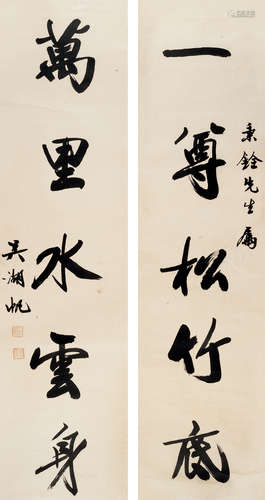 一尊松竹底
秉銓先生屬
萬里水雲身
吳湖帆